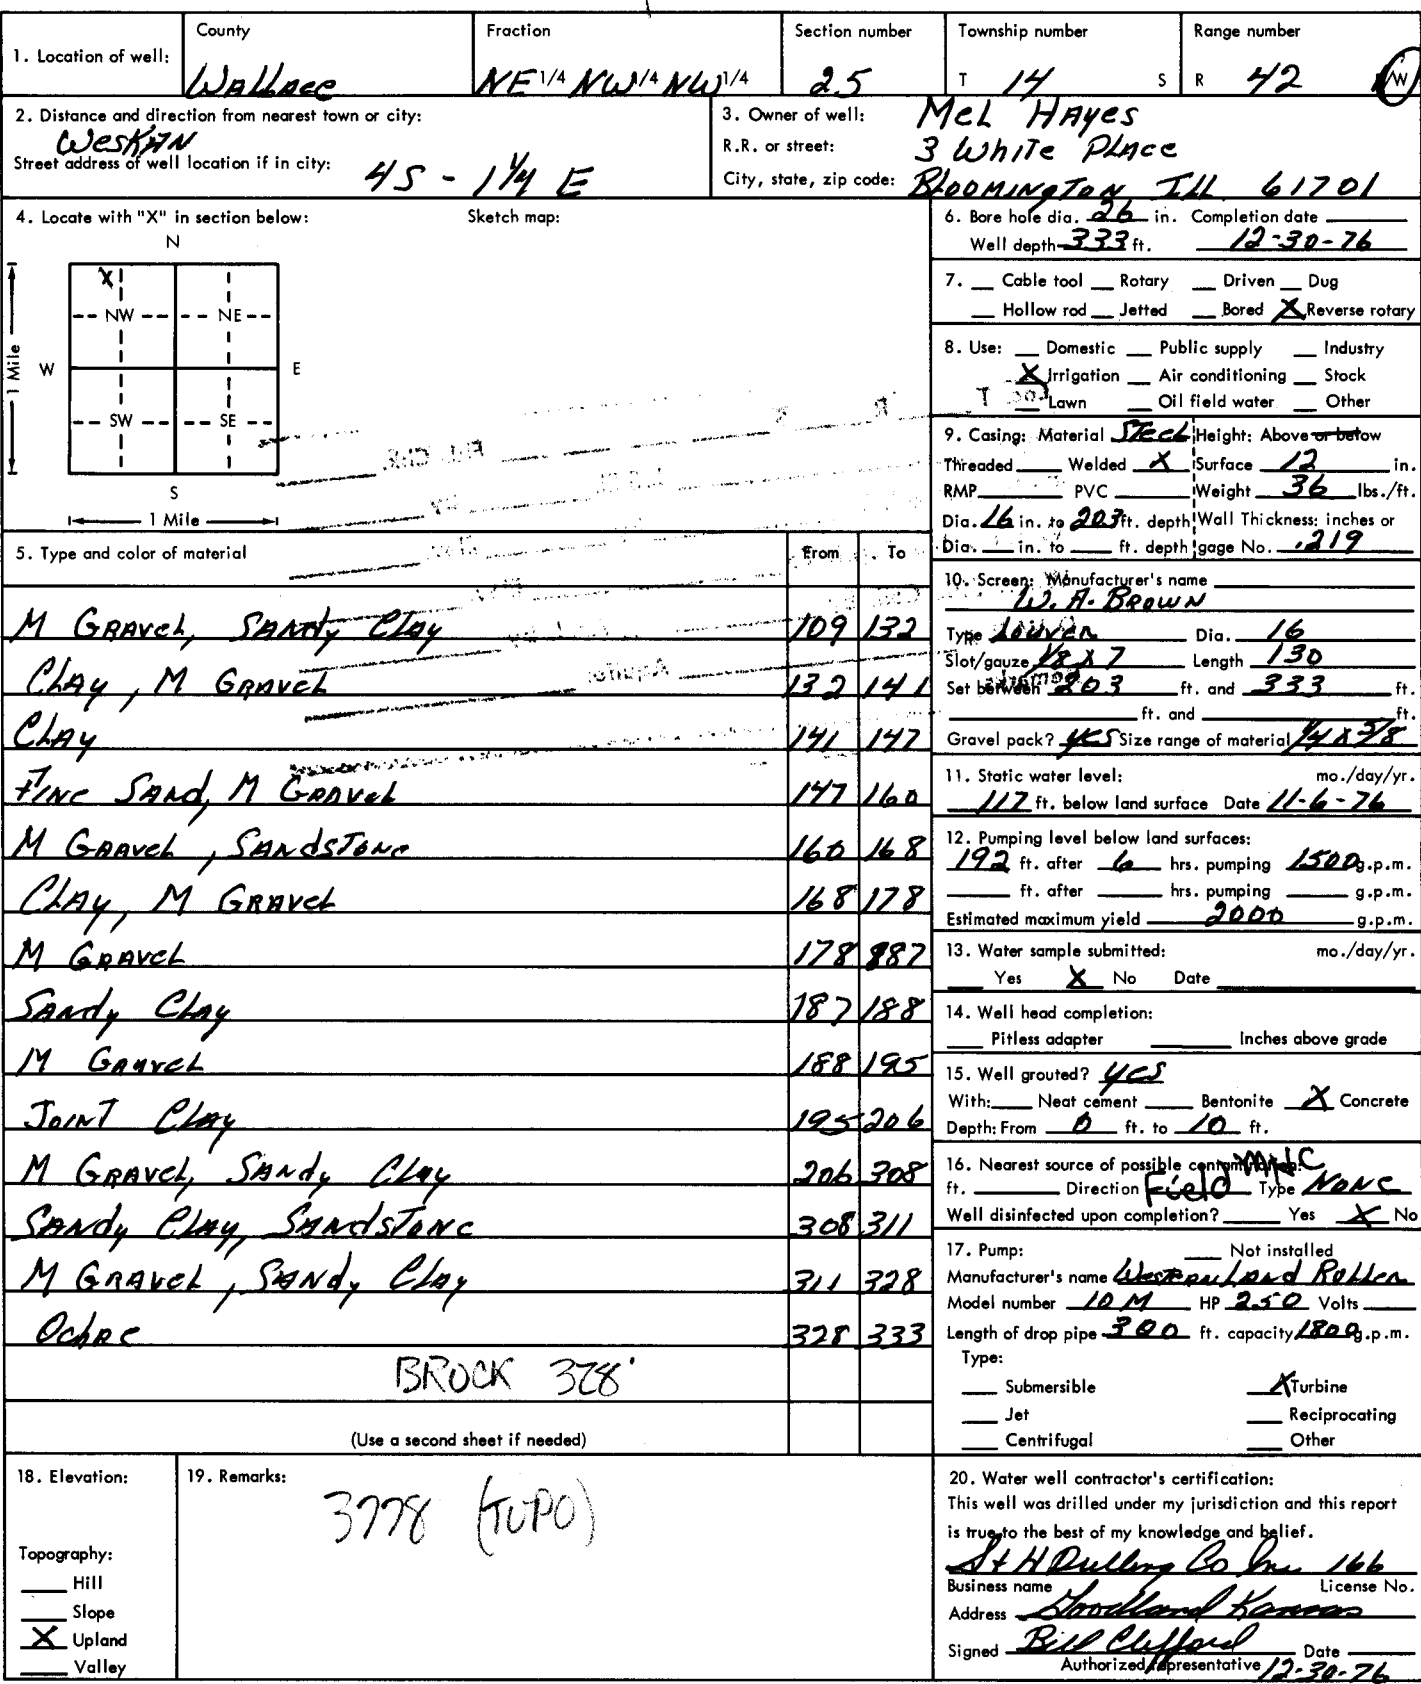 County Fraction Section number Township number Range number
1. Location of well: Wallace NE 1/4 NW 1/4 NW 1/4 25 T 14 S R 42 W
2. Distance and direction from nearest town or city:
Weskan
Street address of well location if in city: 4S - 1 1/4 E
3. Owner of well: Mel Hayes
R.R. or street: 3 White Place
City, state, zip code: Bloomington Ill 61701
4. Locate with "X" in section below: Sketch map:
N
X
NW NE
W E
1 Mile
SW SE
S
1 Mile
5. Type and color of material From To
M Gravel, Sandy Clay 109 132
Clay, M Gravel 132 141
Clay 141 147
Fine Sand, M Gravel 147 160
M Gravel, Sandstone 160 168
Clay, M Gravel 168 178
M Gravel 178 187
Sandy Clay 187 188
M Gravel 188 195
Joint Clay 195 206
M Gravel, Sandy Clay 206 308
Sandy Clay, Sandstone 308 311
M Gravel, Sandy Clay 311 328
Ochre 328 333
BROCK 328'
(Use a second sheet if needed)
6. Bore hole dia. 26 in. Completion date
Well depth 333 ft. 12-30-76
7. Cable tool Rotary Driven Dug
Hollow rod Jetted Bored X Reverse rotary
8. Use: Domestic Public supply Industry
X Irrigation Air conditioning Stock
Lawn Oil field water Other
9. Casing: Material Steel Height: Above or below
Threaded Welded X Surface 12 in.
RMP PVC Weight 36 lbs./ft.
Dia. 16 in. to 203 ft. depth Wall Thickness: inches or
Dia. in. to ft. depth gage No. .219
10. Screen: Manufacturer's name
W.A. Brown
Type Louver Dia. 16
Slot/gauze 1/8 x 7 Length 130
Set between 203 ft. and 333 ft.
ft. and ft.
Gravel pack? yes Size range of material 1/4 x 3/8
11. Static water level: mo./day/yr.
117 ft. below land surface Date 11-6-76
12. Pumping level below land surfaces:
192 ft. after 6 hrs. pumping 1500 g.p.m.
ft. after hrs. pumping g.p.m.
Estimated maximum yield 2000 g.p.m.
13. Water sample submitted: mo./day/yr.
Yes X No Date
14. Well head completion:
Pitless adapter Inches above grade
15. Well grouted? yes
With: Neat cement Bentonite X Concrete
Depth: From 0 ft. to 10 ft.
16. Nearest source of possible contamination:
ft. Direction Field Type None
Well disinfected upon completion? Yes X No
17. Pump: Not installed
Manufacturer's name Western Land Roller
Model number 10 M HP 250 Volts
Length of drop pipe 300 ft. capacity 1800 g.p.m.
Type:
Submersible X Turbine
Jet Reciprocating
Centrifugal Other
18. Elevation:
Topography:
Hill
Slope
X Upland
Valley
19. Remarks:
3778 (TOPO)
20. Water well contractor's certification:
This well was drilled under my jurisdiction and this report
is true to the best of my knowledge and belief.
S & H Drilling Co Inc. 166
Business name License No.
Address Goodland Kansas
Signed Bill Clifford Date
Authorized representative 12-30-76